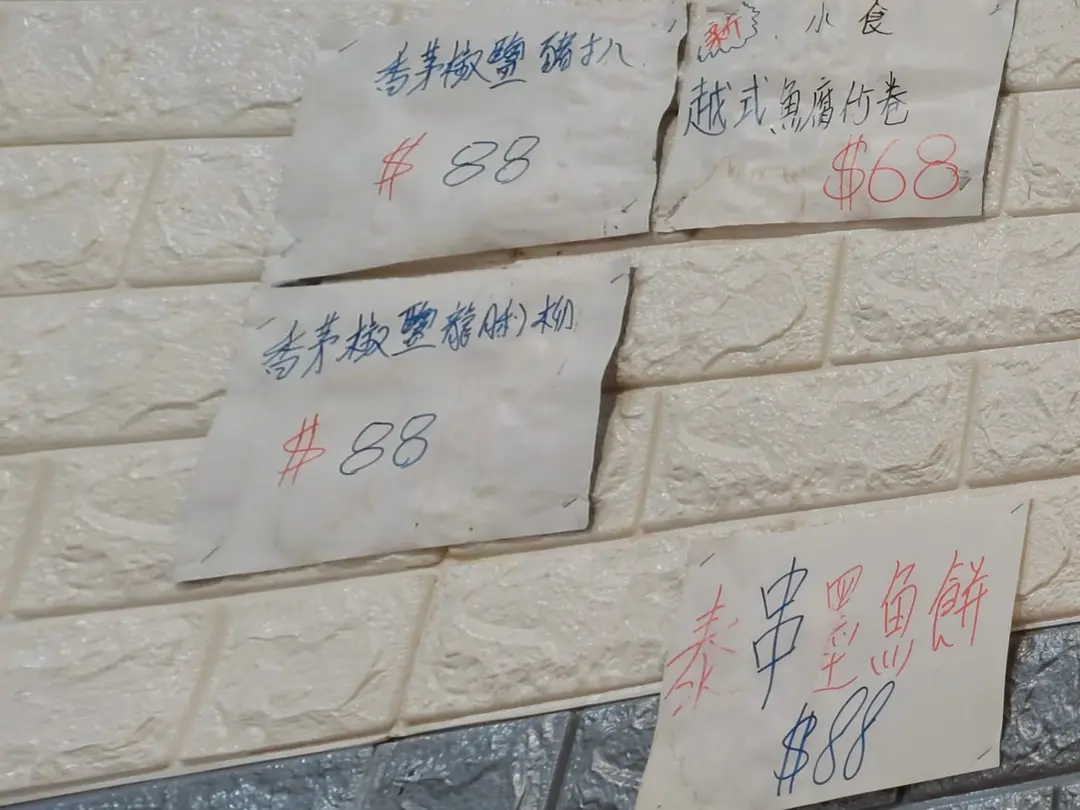 香茅椒鹽豬扒
$88
新 小食
越式魚腐竹卷
$68
香茅椒鹽龍脷柳
$88
泰串墨魚餅
$88